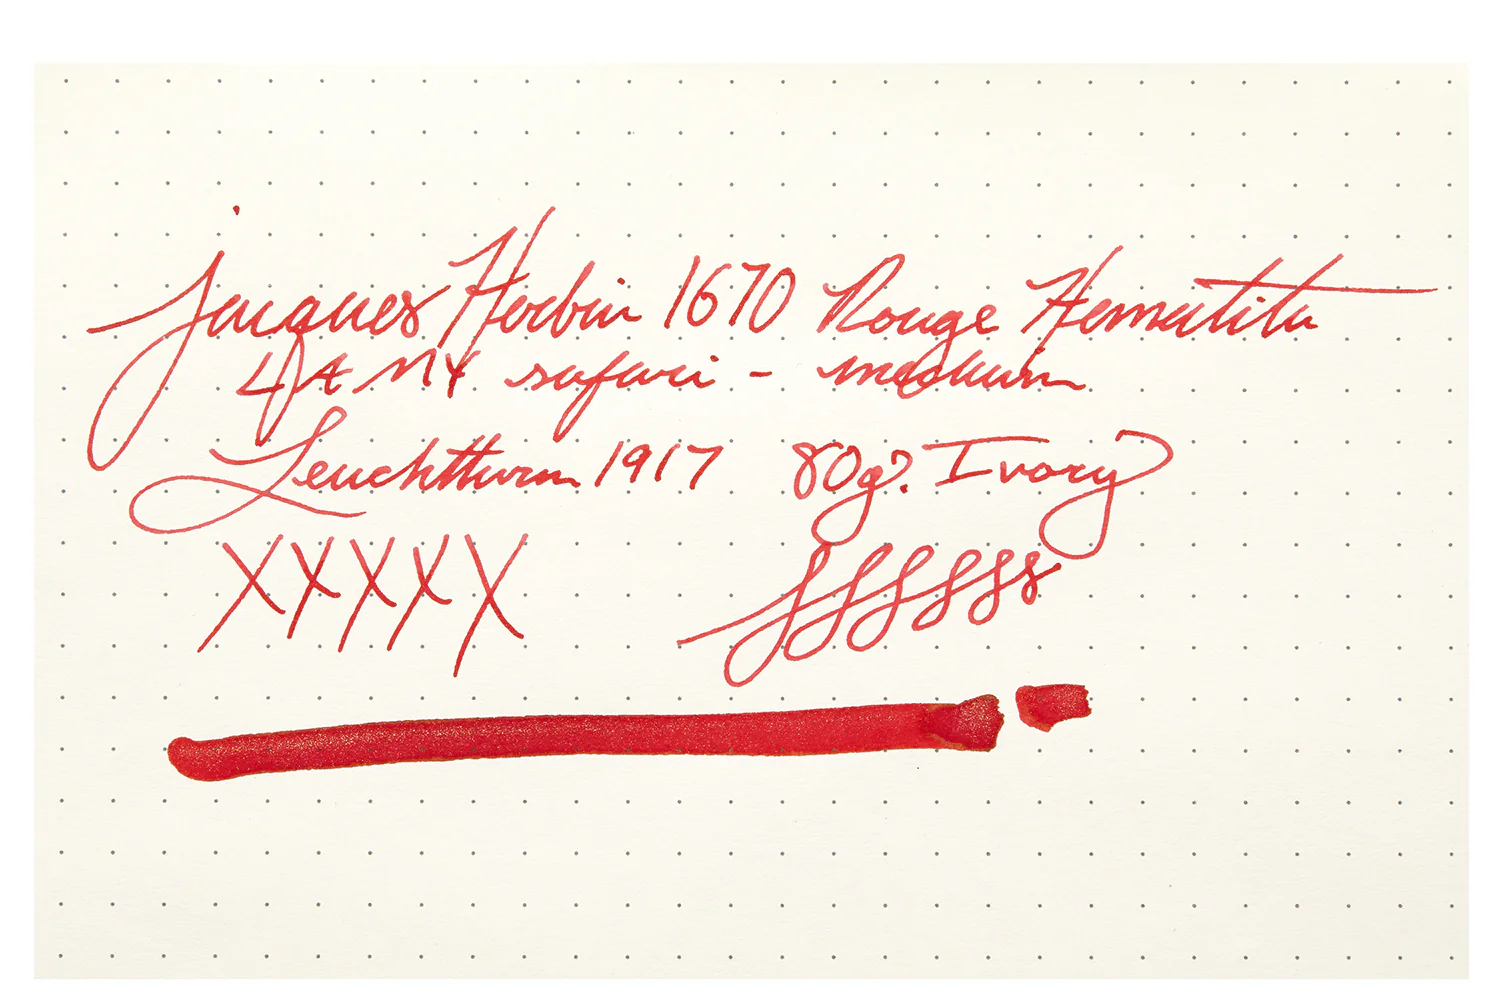 Jacques Herbin 1670 Rouge Hematite
LAMY safari - medium
Leuchtturm 1917 80g? Ivory
XXXXX